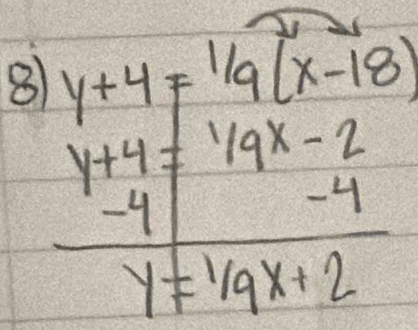 8) y+4 = 1/9(x-18)
y+4 = 1/9x - 2
-4 -4
y = 1/9x + 2